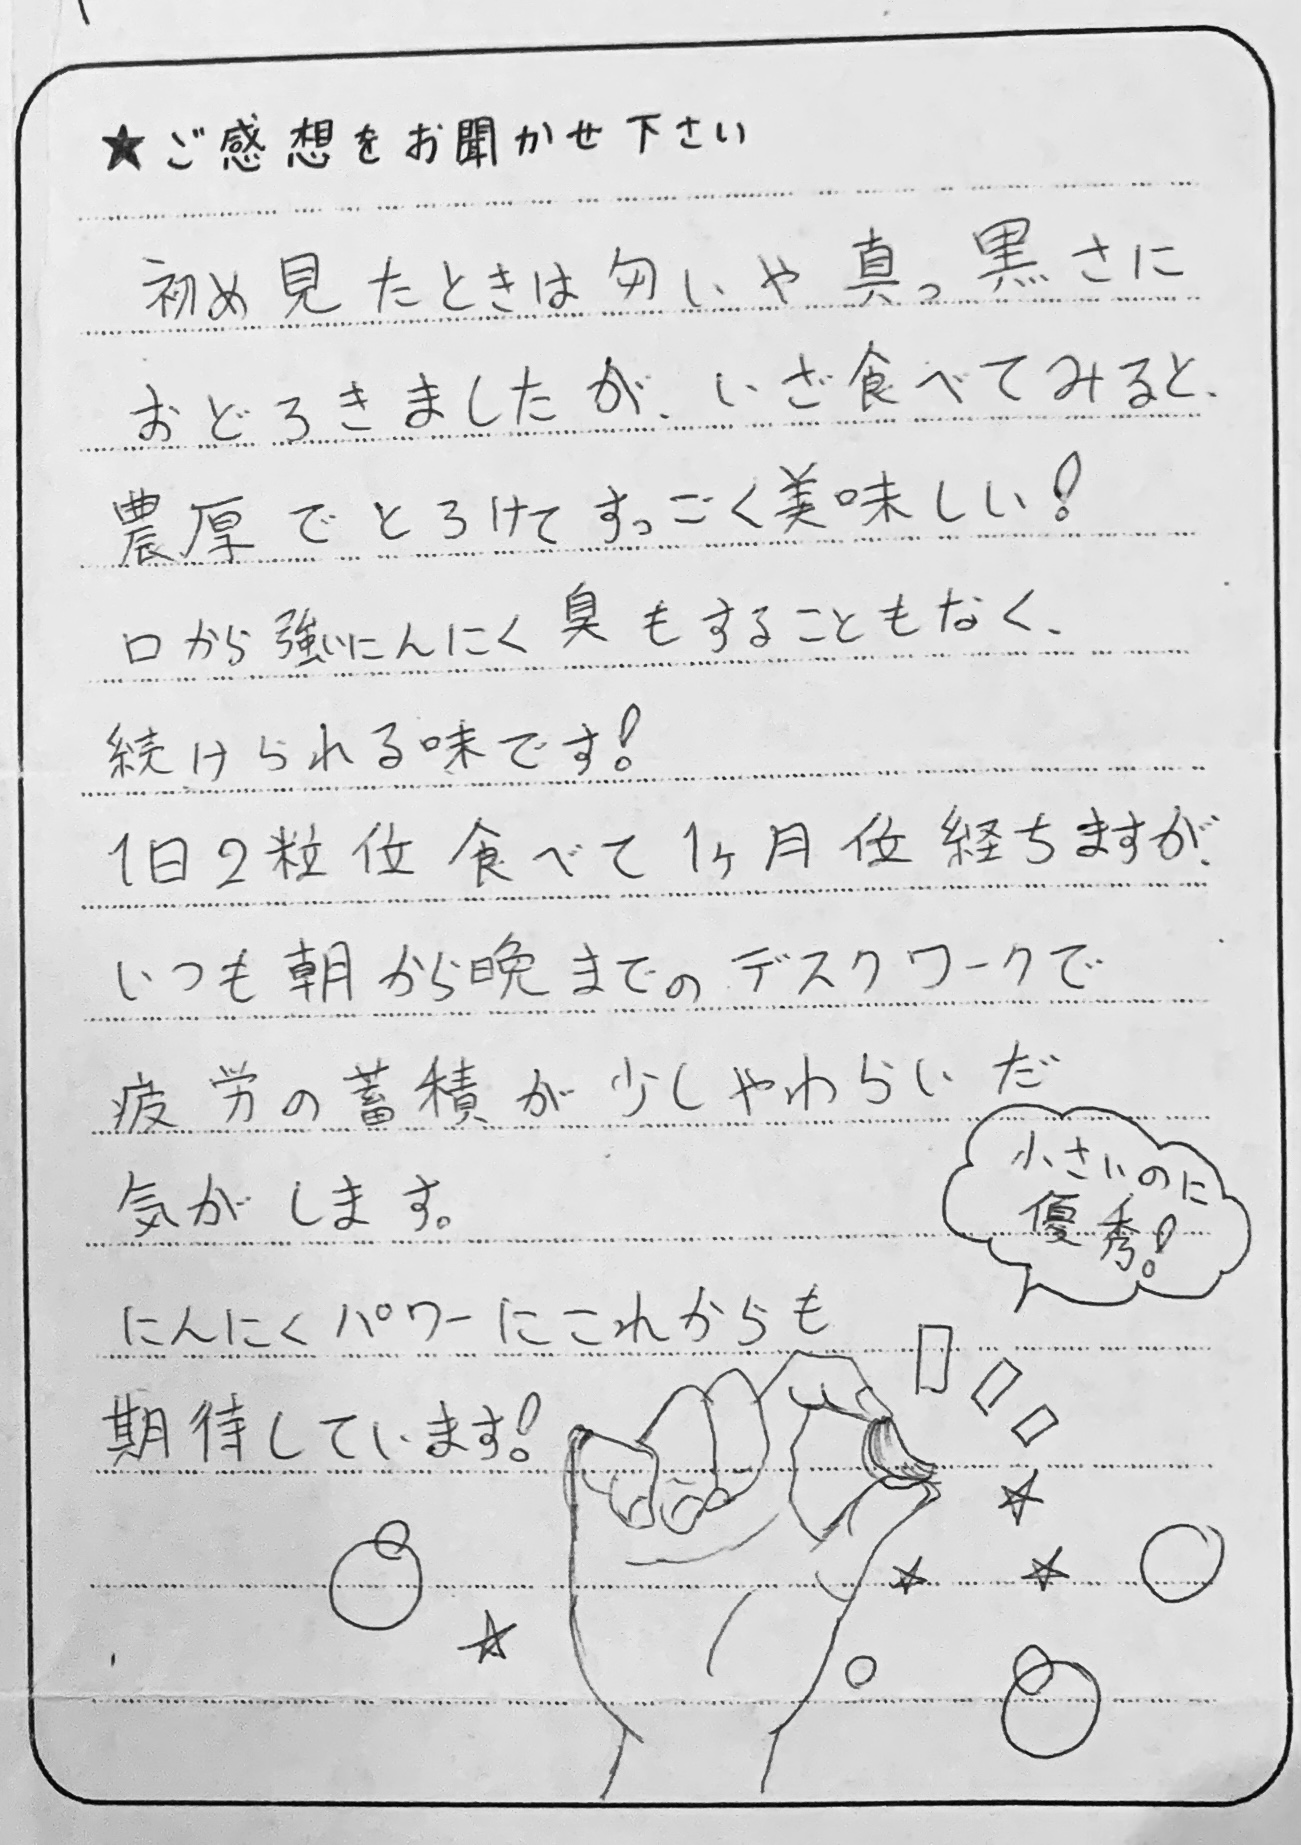 ★ご感想をお聞かせ下さい
初め見たときは匂いや真っ黒さに
おどろきましたが、いざ食べてみると、
濃厚でとろけてすっごく美味しい!
口から強いにんにく臭もすることもなく、
続けられる味です!
1日2粒位食べて1ヶ月位経ちますが、
いつも朝から晩までのデスクワークで
疲労の蓄積が少しやわらいだ
気がします。
小さいのに
優秀!
にんにくパワーにこれからも
期待しています!